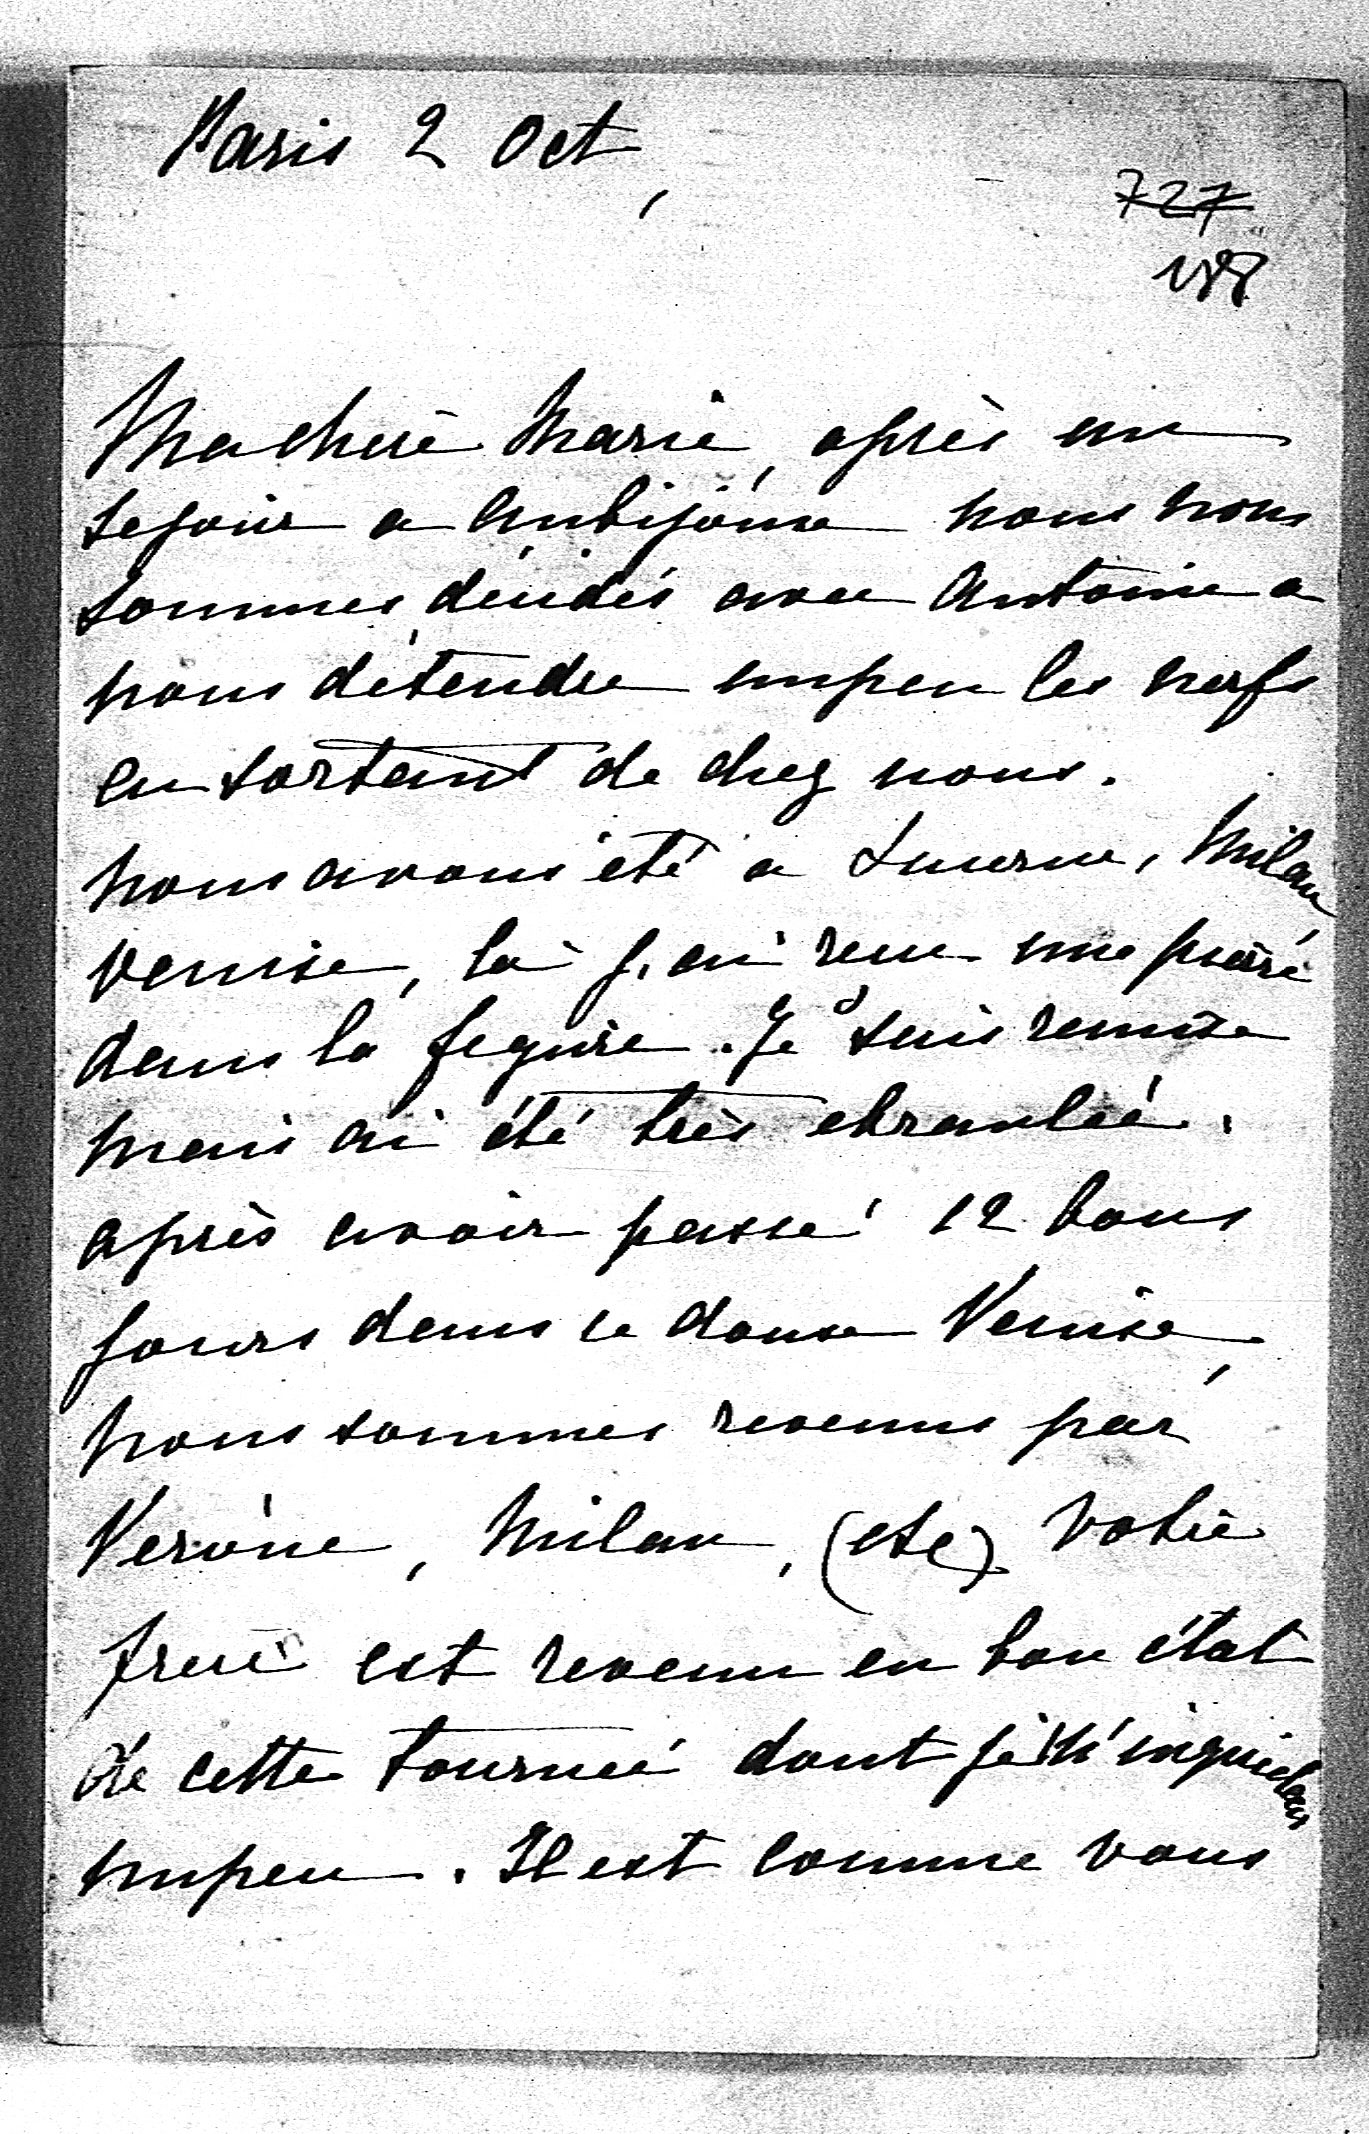 Paris 2 Oct,
727
188
Ma cherè Marie, après un
sejour a nous nous
sommes décidés avec Antoine a
nous détendre unpeu les nerfs
en sortant de chez nous.
nous avons été a Lucerne, Milan
venise, là j'ai recu une
dans la feguire. Je suis remise
mais ai été très ebranleé.
après avoir passé 12 bons
jours dans la douce Venise,
nous sommes revenus par
Verone, Milan, (etc) Votre
frere est revenu en bon état
de cette tourneé dont je m'inquietais
unpeu. Il est comme vous